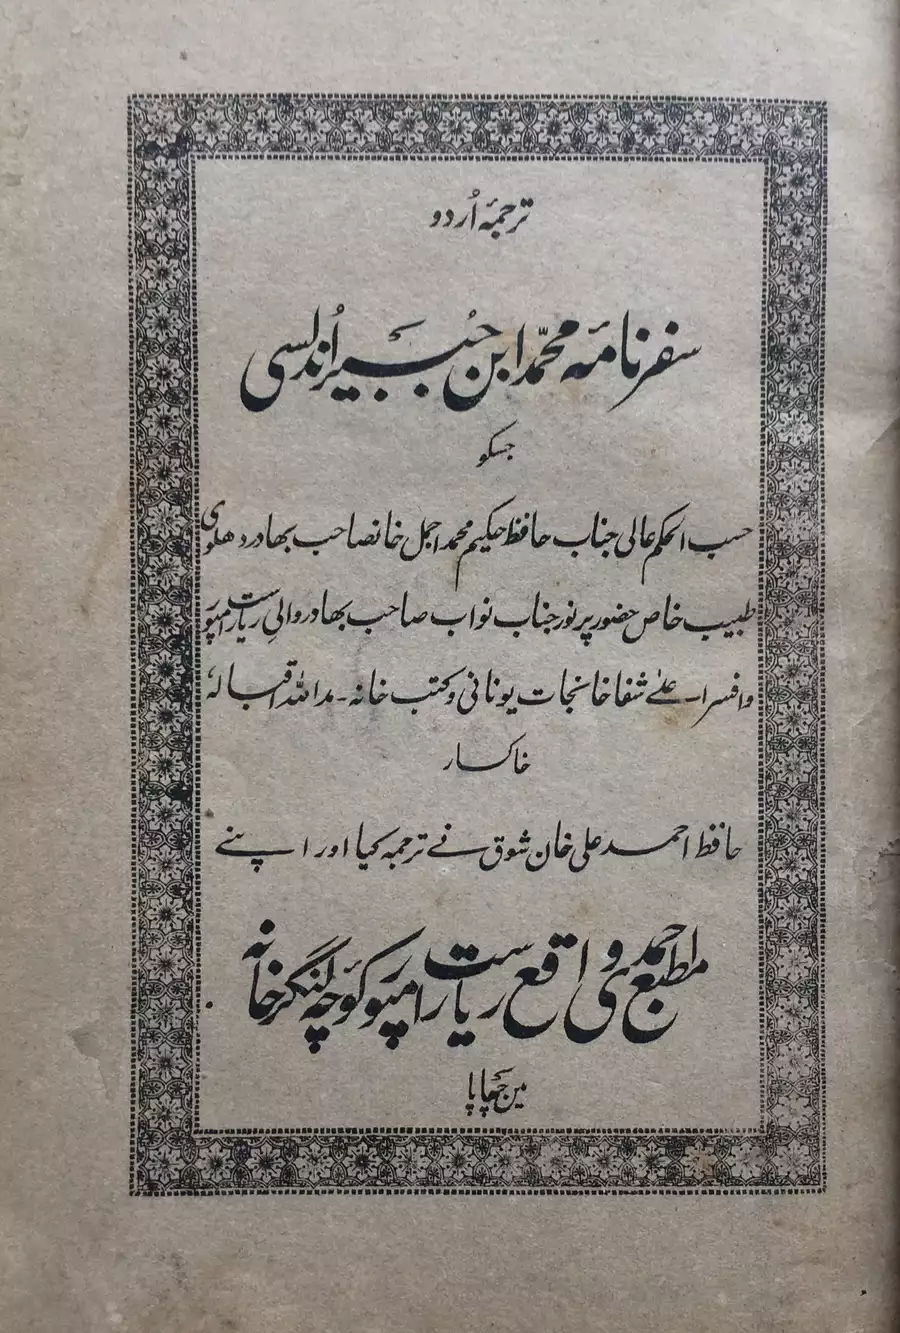 ترجمۂ اُردو
سفرنامۂ محمّد ابن جُبیر اُندلسی
جسکو
حسب الحکم عالی جناب حافظ حکیم محمد اجمل خانصاحب بہادر دہلوی
طبیب خاص حضور پرنور جناب نواب صاحب بہادر والیِ ریاست رامپور
و افسر اعلےٰ شفاخانجات یونانی و کتب خانہ۔ مداللہ اقبالہٗ
خاکسار
حافظ احمد علی خان شوق نے ترجمہ کیا اور اپنے
مطبع احمدی واقع ریاست رامپور کوچۂ لنگرخانہ
مین چھاپا